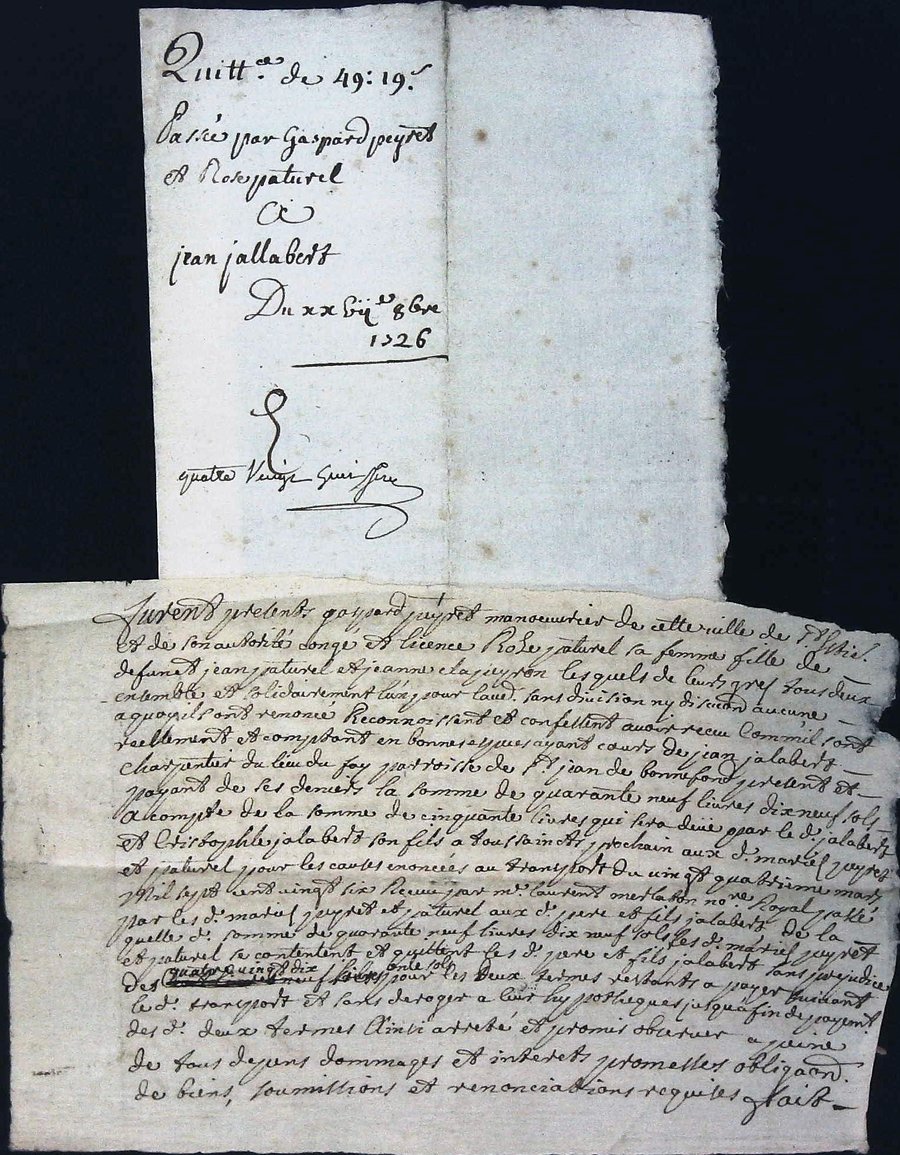 Quitt.ce de 49: 19.s
Passé par Gaspard peyret
et Rose paturel
A
jean jallabert
Du xxvije 8bre
1726
quatre Vingt
Furent presents gaspard peyret manoeuvrier de cette ville de St. Etie.
et de son autorité congé et licence Roze paturel sa femme fille de
defunct jean paturel et jeanne clapeyron lesquels de leurs grés tous deux
ensemble et solidairement l'un pour l'aud. sans division ny discuon aucune
a quoy ils ont renoncé Reconnoissent et confessent avoir receu Comm'il sont
reellement et comptant en bonnes especes ayant cours de jean jalabert
Charpentier du lieu du fay parroisse de St. jean de bonnefond present et
payant de ses deniers la somme de quarante neuf livres dix neuf sols
A compte de la somme de cinquante livres qui sera düe par le d. jalabert
et Cristophle jalabert son fils a toussaincts prochain aux d. mariés peyret
et paturel pour les causes enoncées au transport du vingt quatrieme mars
Mil sept cent vingt six Receu par me. laurent merlabon nore. Royal passé
par les d. mariés peyret et paturel aux d. pere et fils jalabert de la
quelle d. somme de quarante neuf livres dix neuf sols les d. mariés peyret
et paturel se contentent et quittent les d. pere et fils jalabert sans prejudice
des quatre vingt dix neuf livres onze sols pour les deux termes restants a payer suivant
le d. transport et sans deroger a leur hypotheques jusqu'a fin de payemt.
des d. deux termes Ainsi arreté et promis observer a peine
de tous depens dommages et interets promesses obligaon.
de biens, soumissions et renonciations requises fait